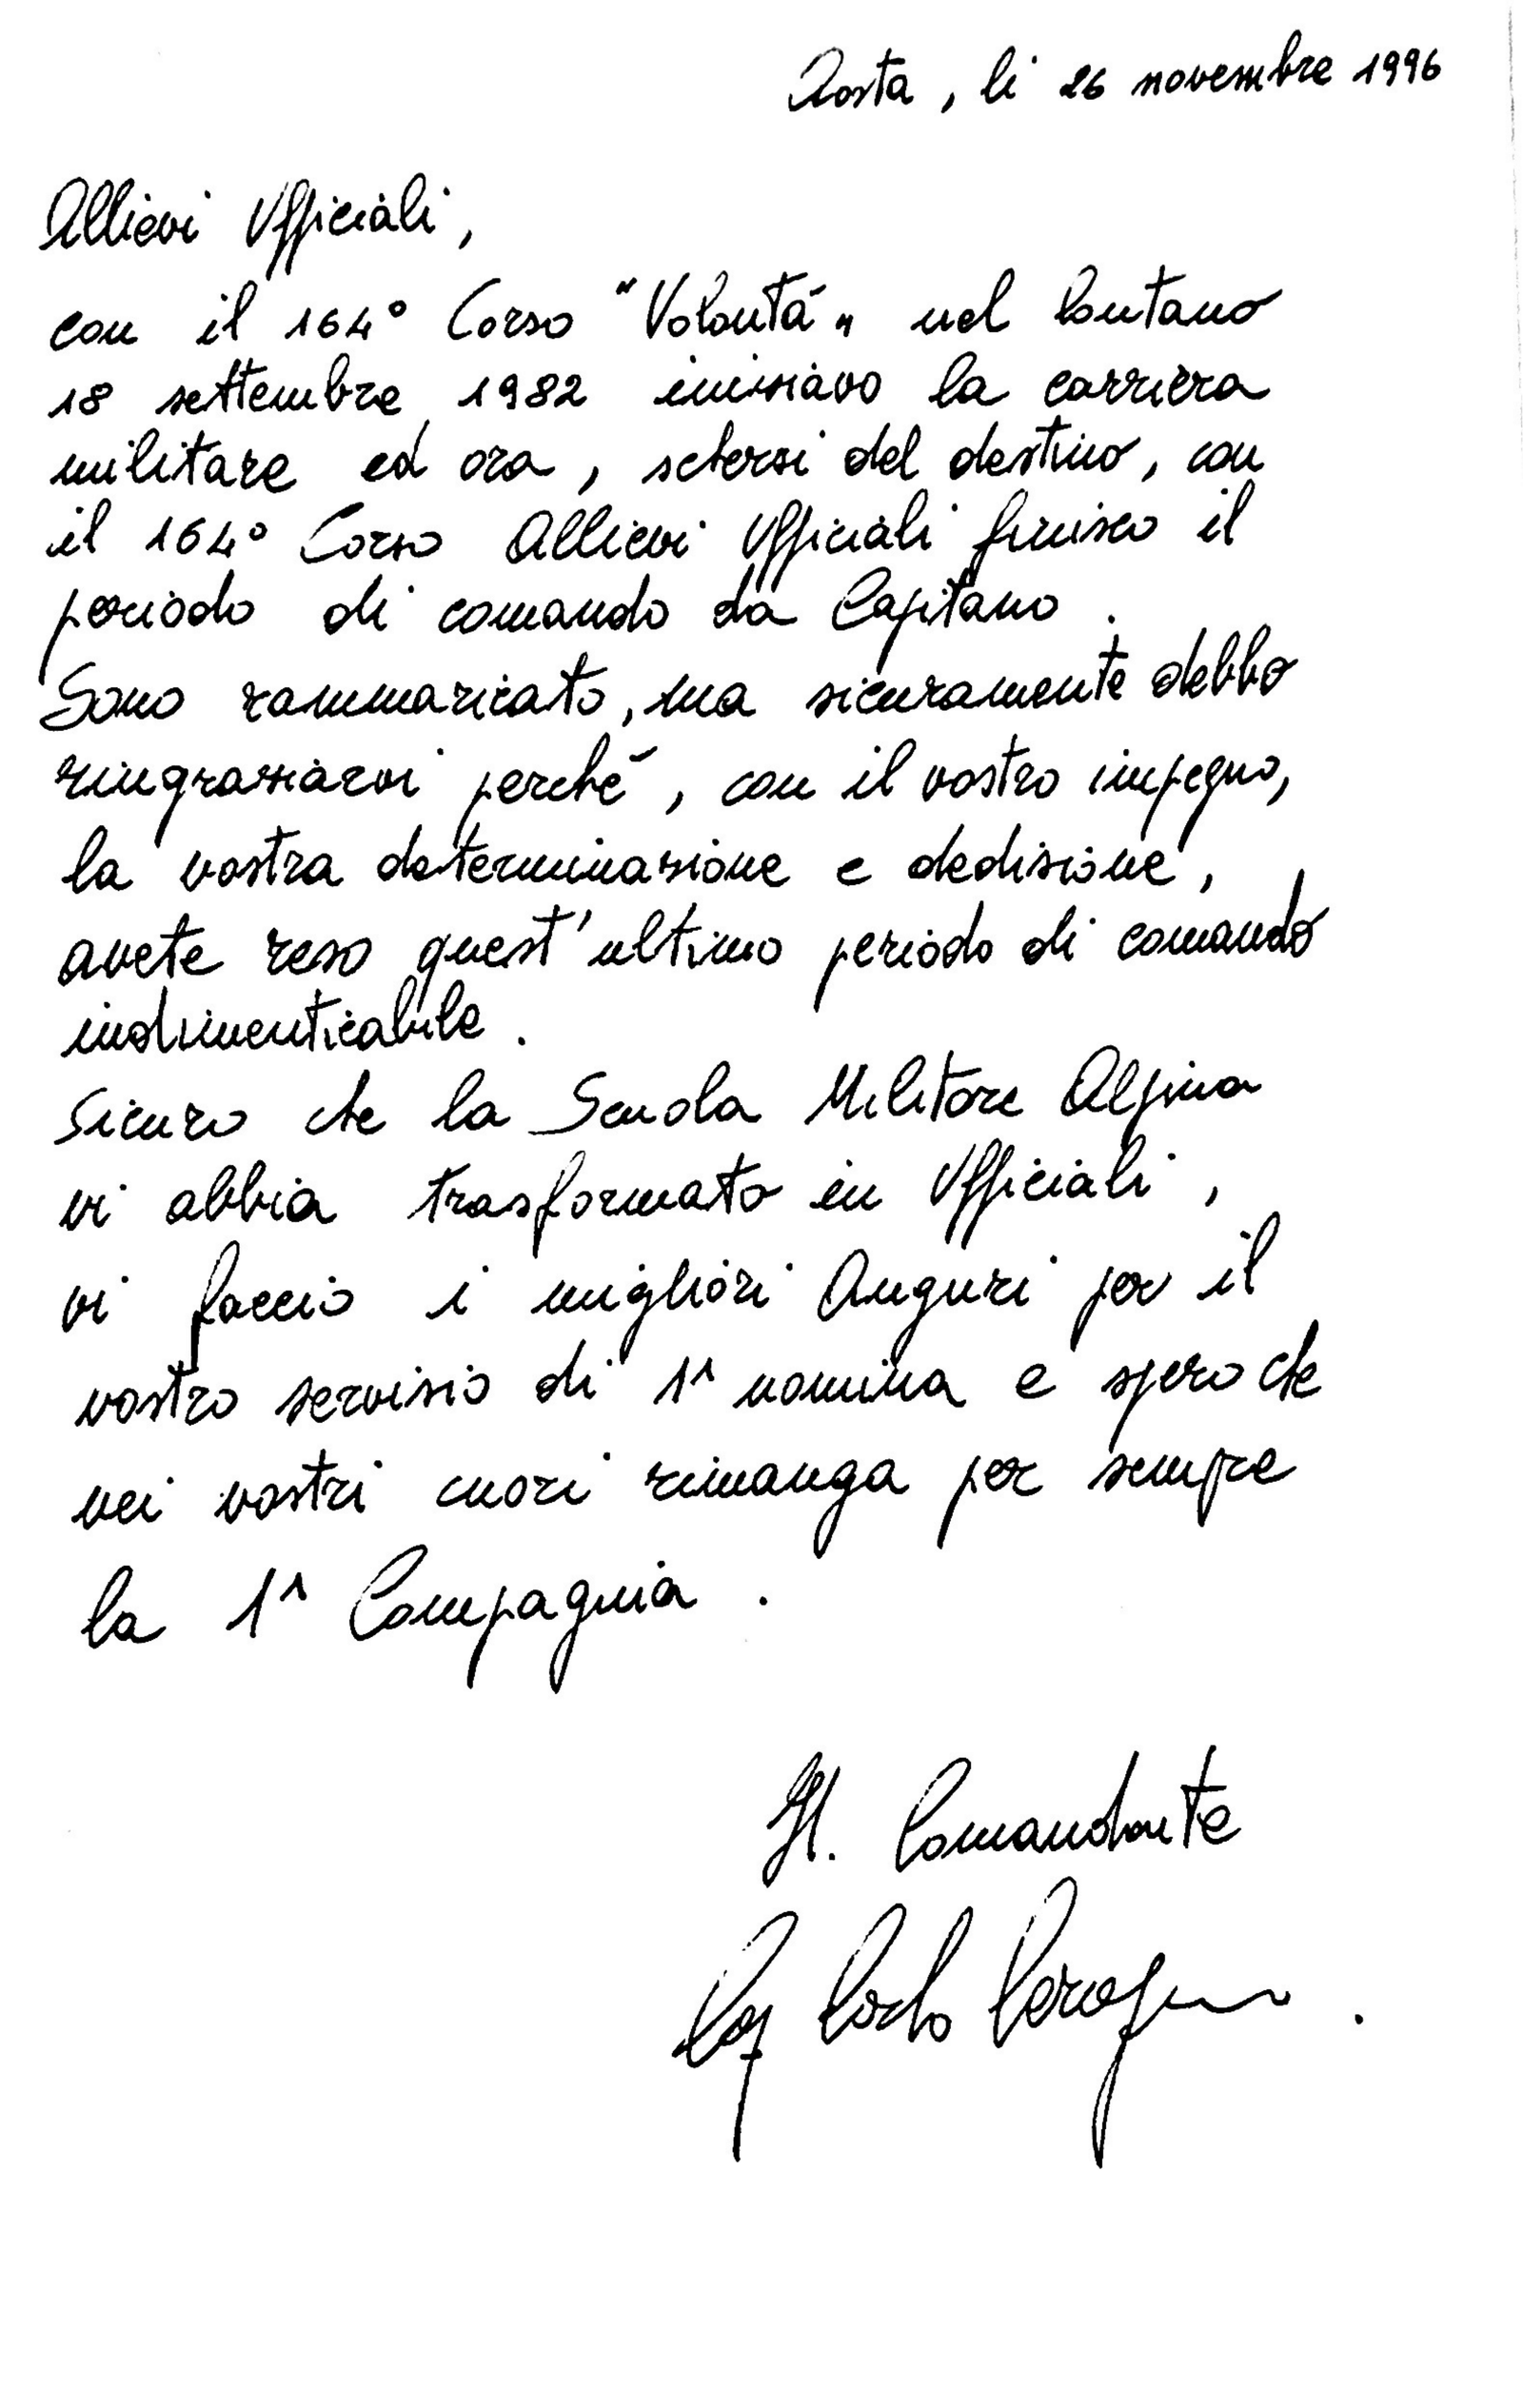 Aosta, lì 26 novembre 1996
Allievi Ufficiali,
con il 164° Corso "Volontà" nel lontano
18 settembre 1982 iniziavo la carriera
militare ed ora, scherzi del destino, con
il 164° Corso Allievi Ufficiali finisco il
periodo di comando da Capitano.
Sono rammaricato, ma sicuramente debbo
ringraziarvi perché, con il vostro impegno,
la vostra determinazione e dedizione,
avete reso quest'ultimo periodo di comando
indimenticabile.
Sicuro che la Scuola Militare Alpina
vi abbia trasformato in Ufficiali,
vi faccio i migliori Auguri per il
vostro servizio di 1^ nomina e spero che
nei vostri cuori rimanga per sempre
la 1^ Compagnia.
Il. Comandante
Cap Carlo